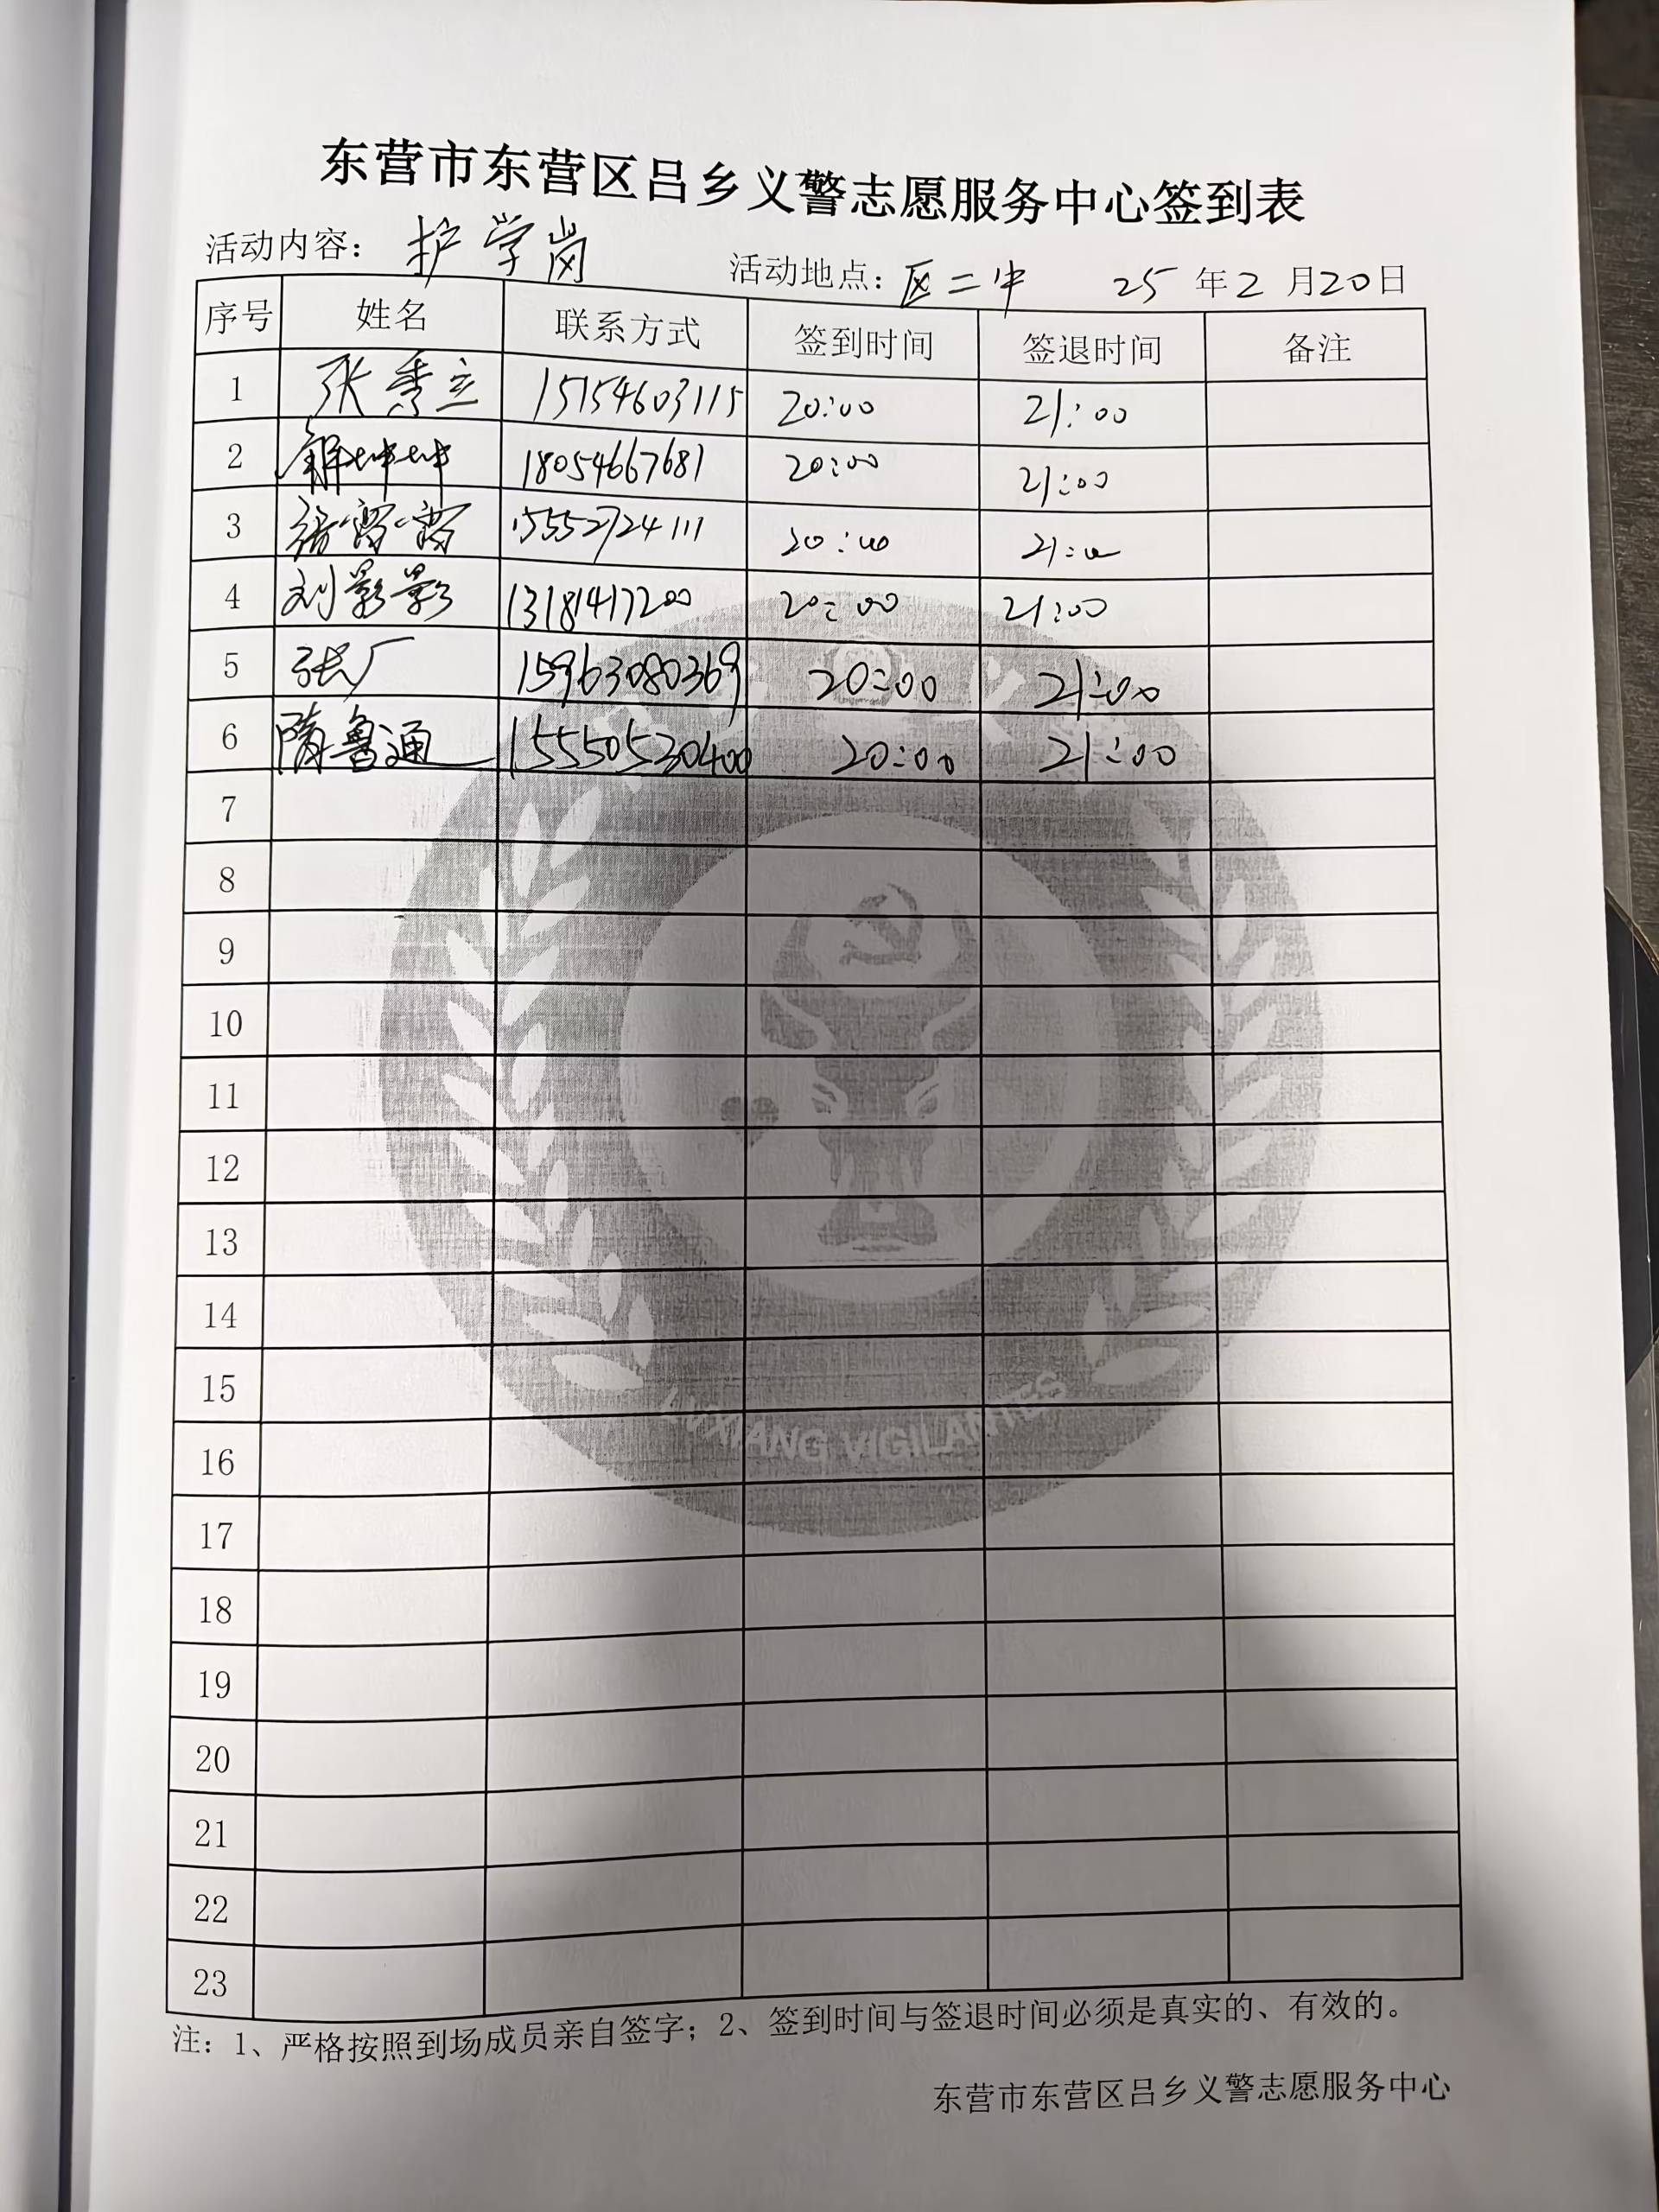 东营市东营区吕乡义警志愿服务中心签到表
活动内容： 护学岗 活动地点：区二中 25 年 2 月 20 日
序号 姓名 联系方式 签到时间 签退时间 备注
1 张秀立 15154603115 20:00 21:00
2 解坤坤 18054667681 20:00 21:00
3 张雷雷 15552724111 20:00 21:00
4 刘影影 13181417200 20:00 21:00
5 张厂 15963080369 20:00 21:00
6 隋鲁通 15550530400 20:00 21:00
7
8
9
10
11
12
13
14
15
16
17
18
19
20
21
22
23
LVXIANG VIGILANTES
注：1、严格按照到场成员亲自签字；2、签到时间与签退时间必须是真实的、有效的。
东营市东营区吕乡义警志愿服务中心